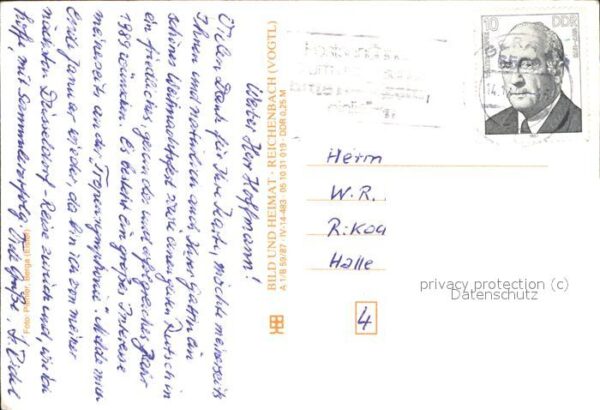 Werter Herr Hoffmann!
Vielen Dank für Ihre Karte, möchte meinerseits
Ihnen und natürlich auch Ihrer Gattin ein
schönes Weihnachtsfest sowie einen guten Rutsch in
ein friedliches, gesundes und erfolgreiches Jahr
1989 wünschen. Es besteht ein großes Interesse
meinerseits an der "Melde mich
Ende Januar wieder, da bin ich von meiner
nächsten Düsseldorf-Reise zurück und, wie ich
hoffe, mit Sammlererfolg. Viele Grüße,
Foto:
BILD UND HEIMAT · REICHENBACH (VOGTL)
A 1/B 59/87 IV-14-483 05 10 31 019 DDR 0,25 M
10 DDR
Herrn
W. R.
Halle
4
privacy protection (c)
Datenschutz